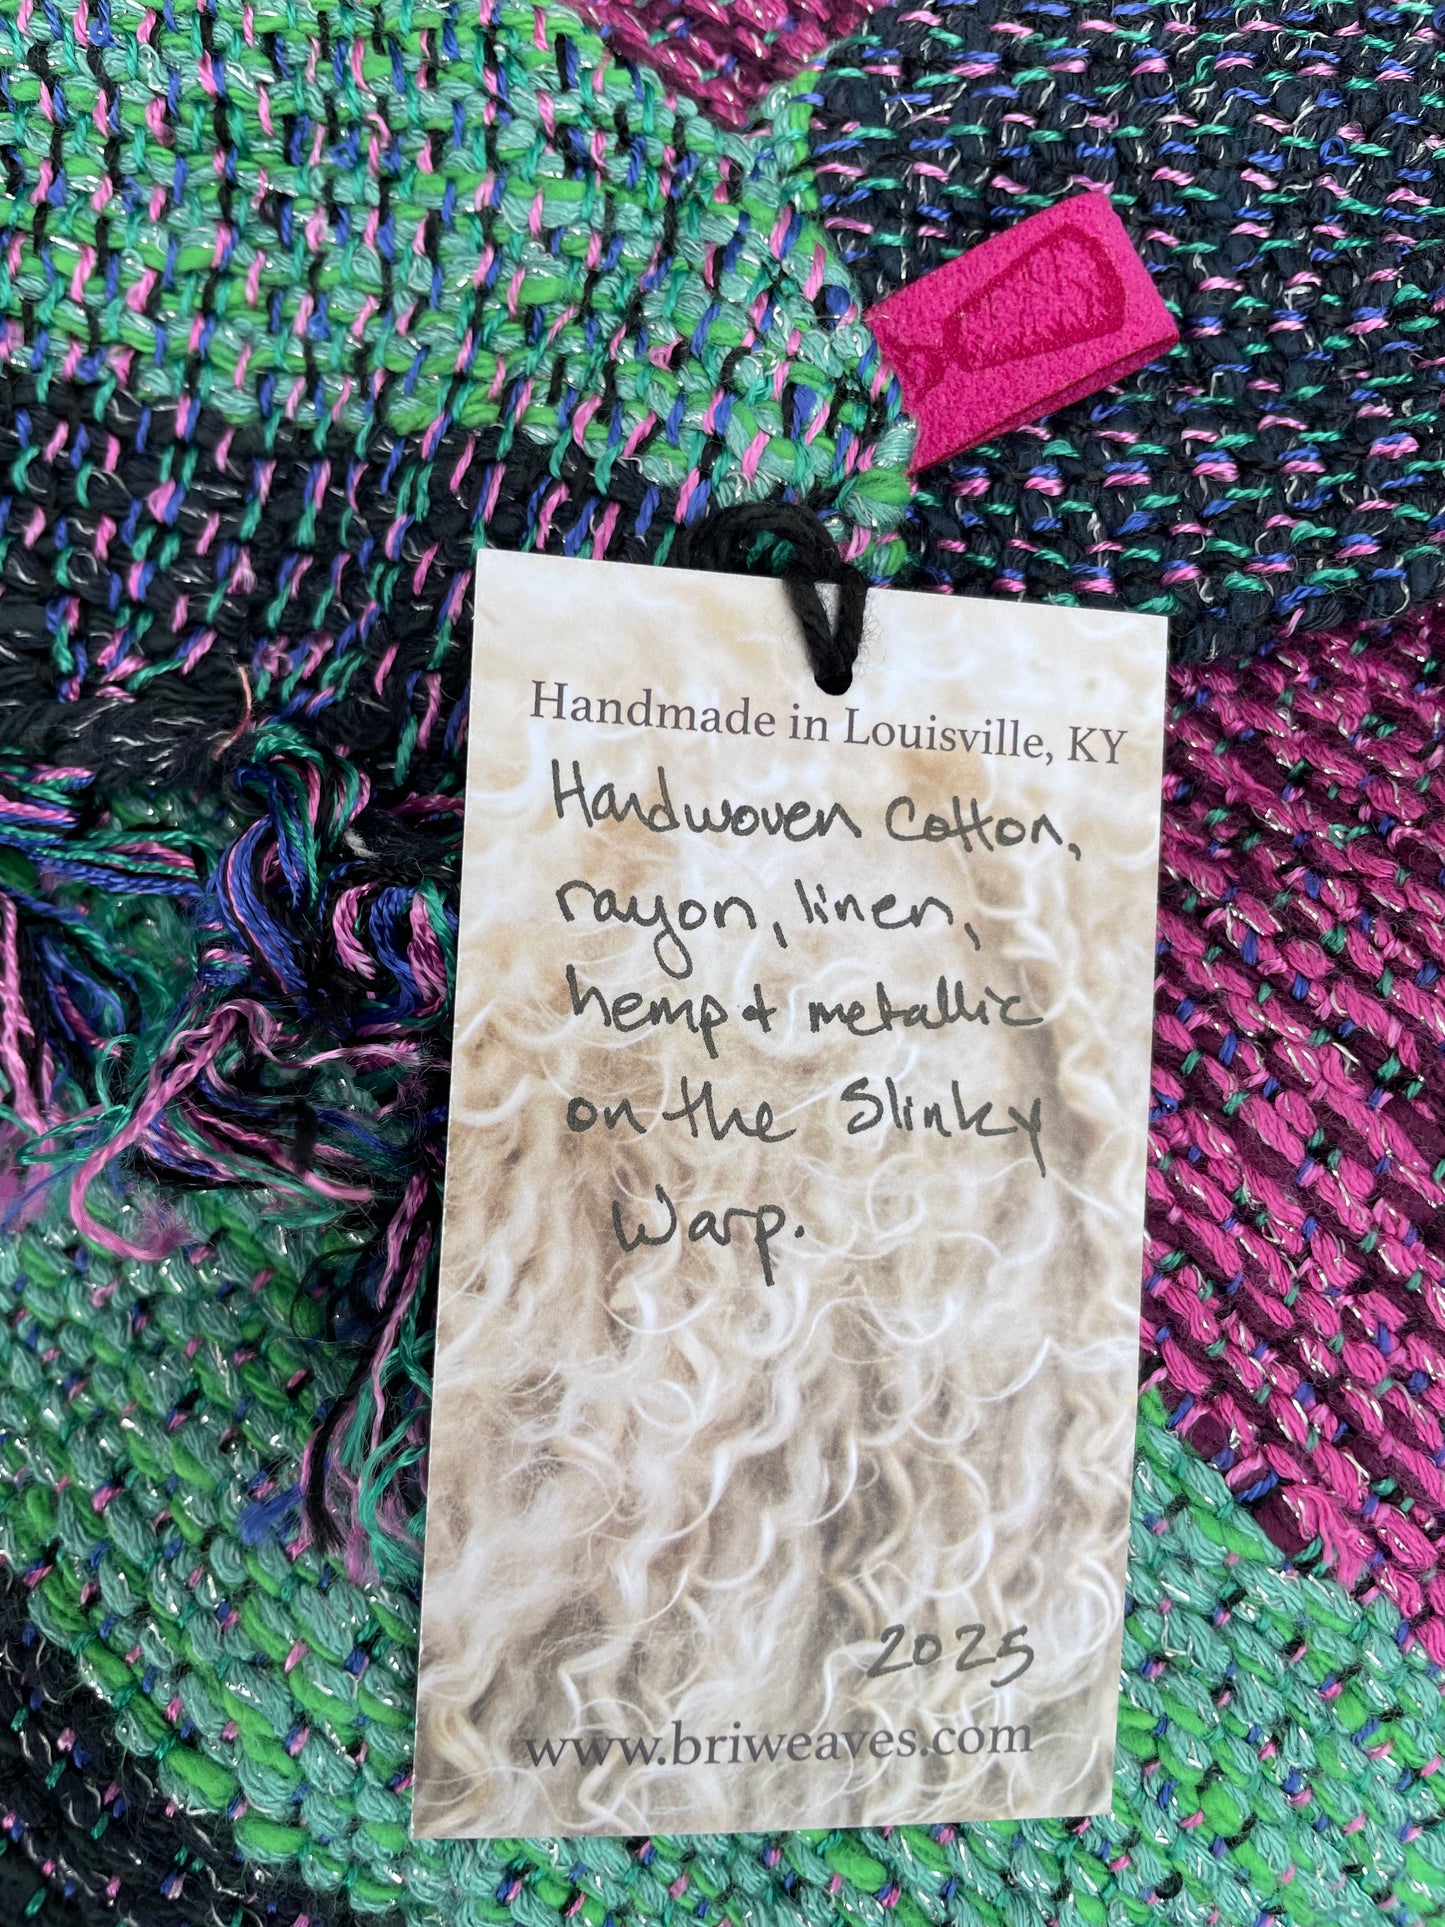 Handmade in Louisville, KY
Handwoven Cotton,
rayon, linen,
hemp & metallic
on the Slinky
Warp.
2025
www.briweaves.com